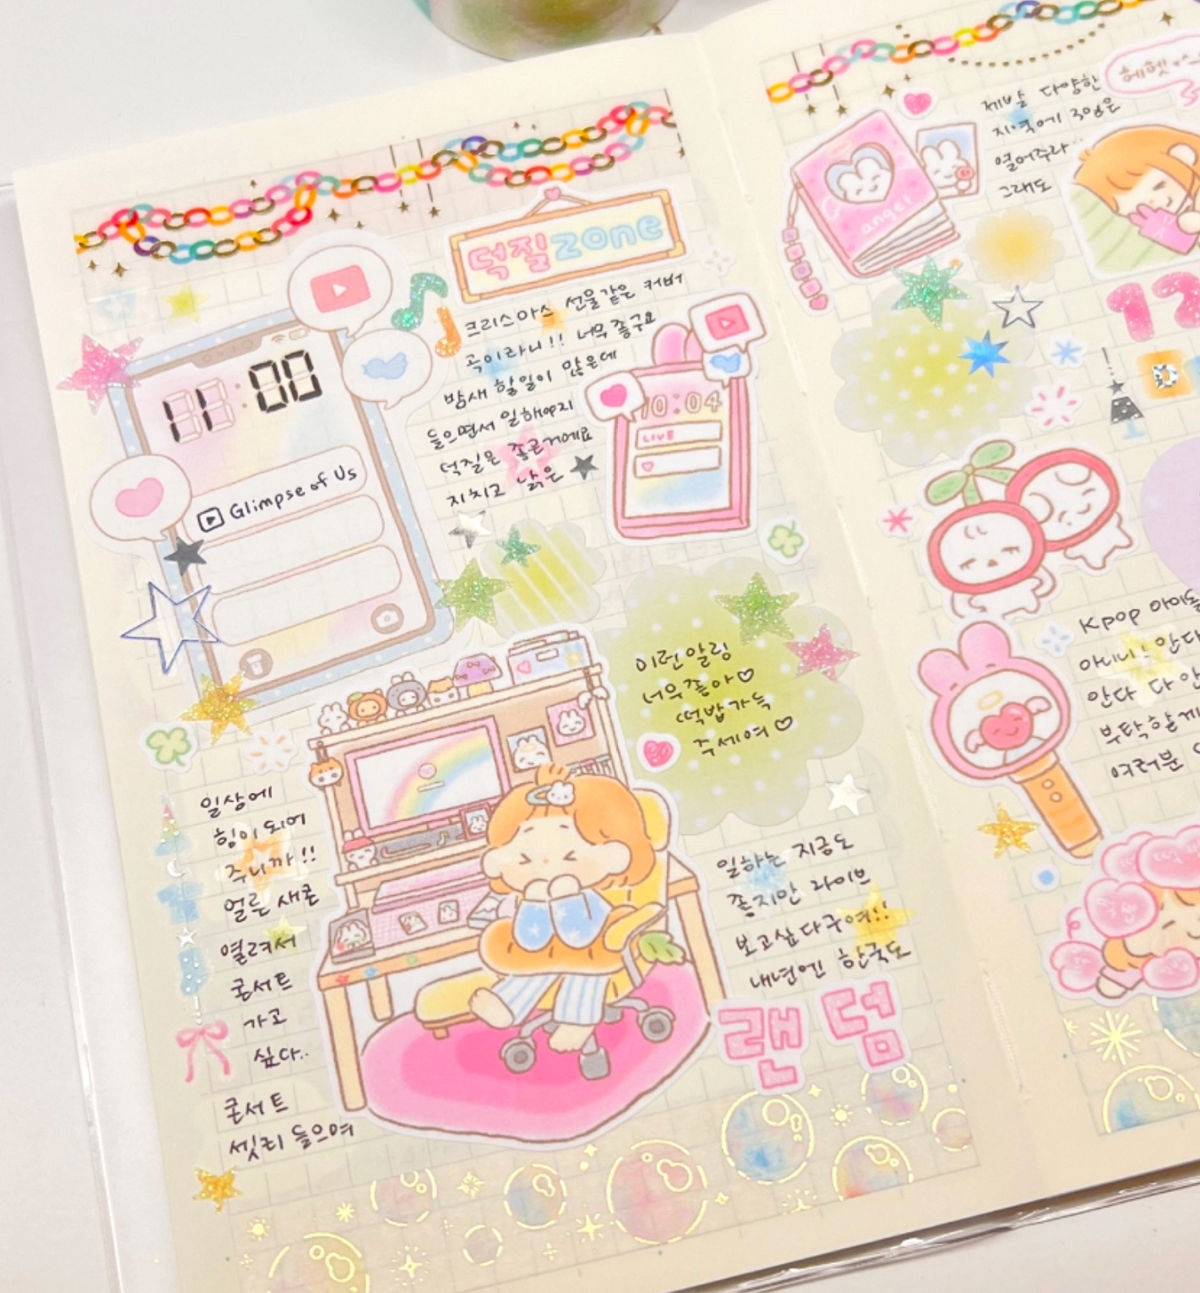 덕질zone
크리스마스 선물같은 커버
곡이라니!! 너무 좋구요
밤새 할일이 많은데
들으면서 일해야지
덕질은 좋은거에요
지치고 낡은
11:00
Glimpse of Us
10:04
LIVE
이런 알림
너무 좋아♡
떡밥 가득
주세여♡
일상에
힘이 되어
주니까!!
얼른 새콘
열려서
콘서트
가고
싶다..
콘서트
셋리 들으며
일하는 지금도
좋지만 라이브
보고싶다구여!!
내년엔 한국도
랜덤
제발 다양한
지역에 공연을
열어주라..
그래도
angel
12
D
Kpop 아이돌
아니니! 안다
안다 다 안
부탁할게
여러분